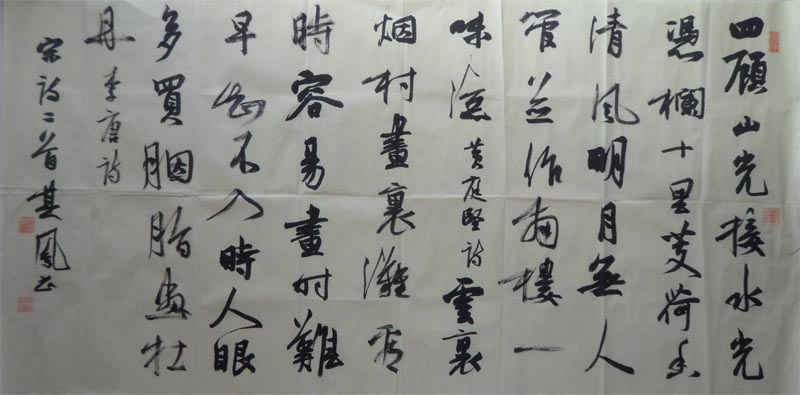 四顾山光接水光
憑欄十里芰荷香
清風明月無人
管並作南樓一
味凉 黄庭堅詩 雲裏
烟村畫裏灘看
時容易畫時難
早知不入時人眼
多買胭脂畫牡
丹 李唐詩
宋詩二首其鳳書